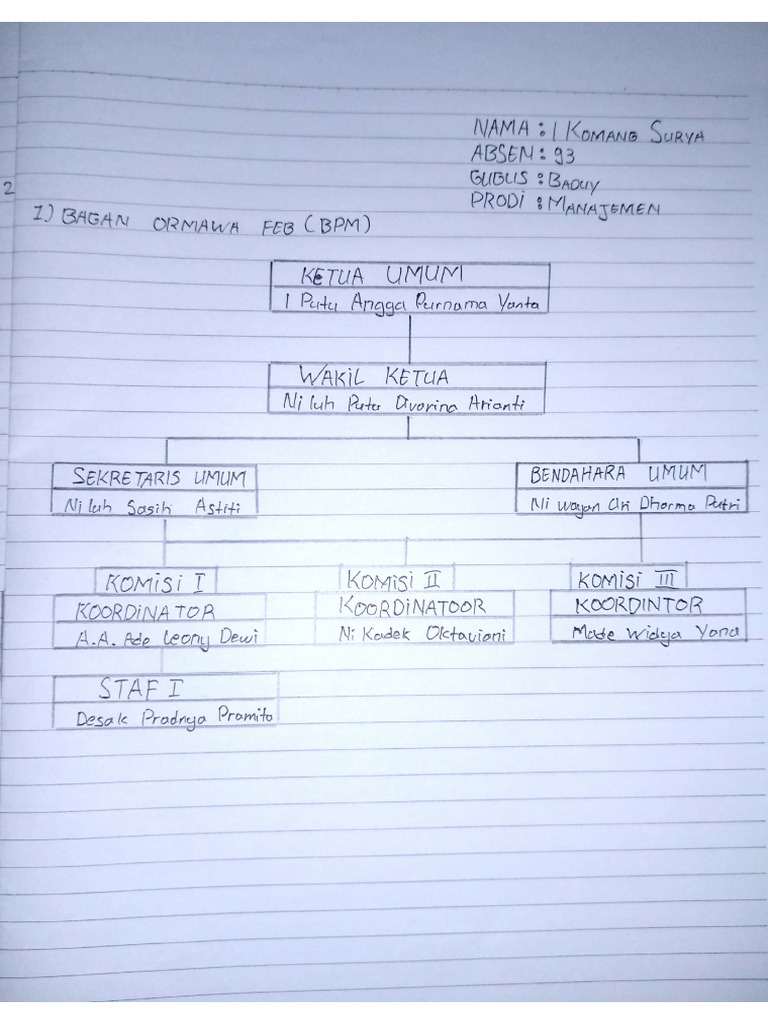 NAMA : I KOMANG SURYA
ABSEN : 93
GUGUS : BADUY
PRODI : MANAJEMEN
2
1) BAGAN ORMAWA FEB (BPM)
KETUA UMUM
I Putu Angga Purnama Yanta
WAKIL KETUA
Ni luh Putu Divorina Arianti
SEKRETARIS UMUM
Ni luh Sasih Astiti
BENDAHARA UMUM
Ni wayan Ari Dharma Putri
KOMISI I
KOORDINATOR
A.A. Ade Leony Dewi
KOMISI II
KOORDINATOOR
Ni Kadek Oktaviani
KOMISI III
KOORDINTOR
Made Widya Yana
STAF I
Desak Pradnya Pramita